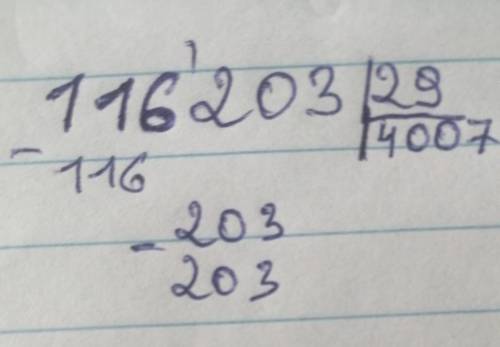 116'203 29
- 116 4007
- 203
203